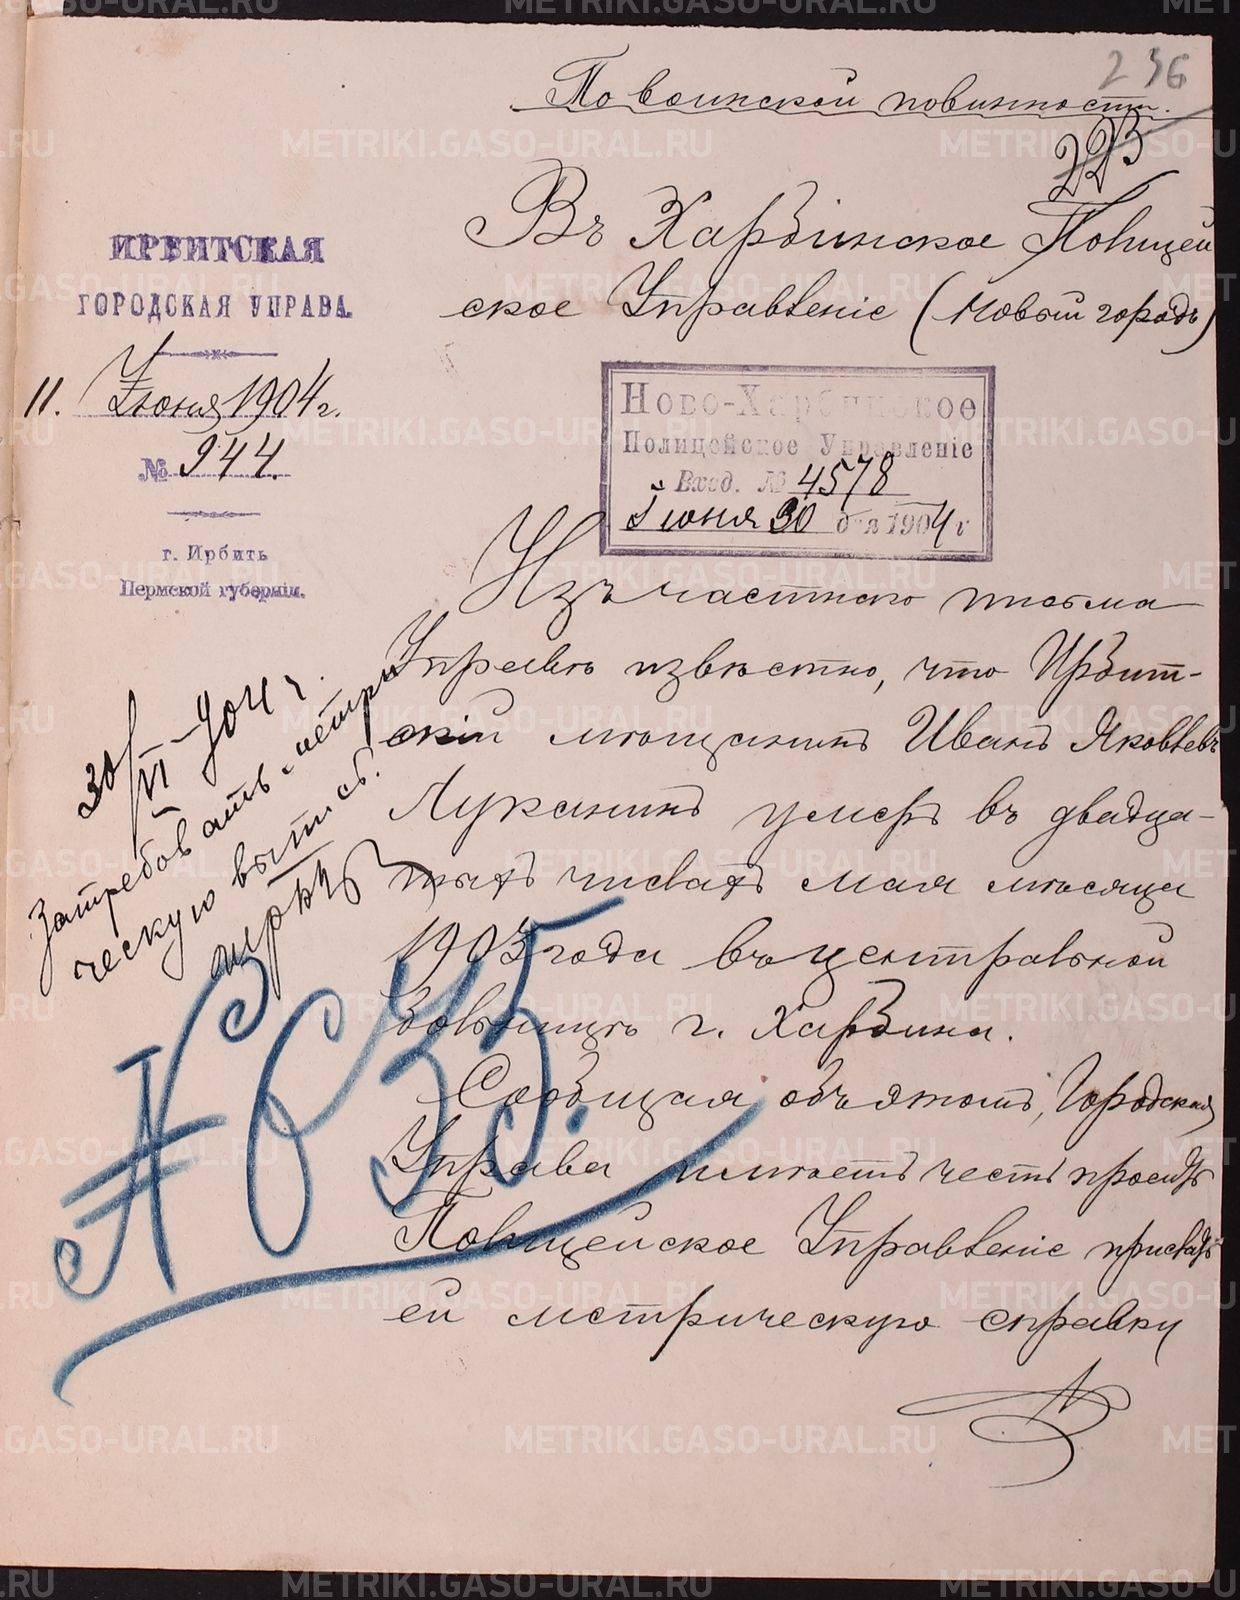 236
По воинской повинности.
223
Въ Харбинское Полицей
ское Управленіе (Новый городъ)
ИРБИТСКАЯ
ГОРОДСКАЯ УПРАВА.
11. Іюня 1904 г.
№ 944.
г. Ирбить
Пермской губерніи.
Ново-Харбинское
Полицейское Управленіе
Вход. № 4578
Іюня 30 дня 1904 г
Изъ частнаго письма
Управѣ извѣстно, что Ирбит-
скій мѣщанинъ Иванъ Яковлевъ
Луканинъ умеръ въ двадца-
тыхъ числахъ мая мѣсяца
1903 года въ центральной
больницѣ г. Харбина.
Сообщая объ этомъ, Городская
Управа имѣетъ честь просить
Полицейское Управленіе прислать
ей метрическую справку
30/VI 904 г.
Затребовать метри
ческую выпись.
№ 635.
METRIKI.GASO-URAL.RU